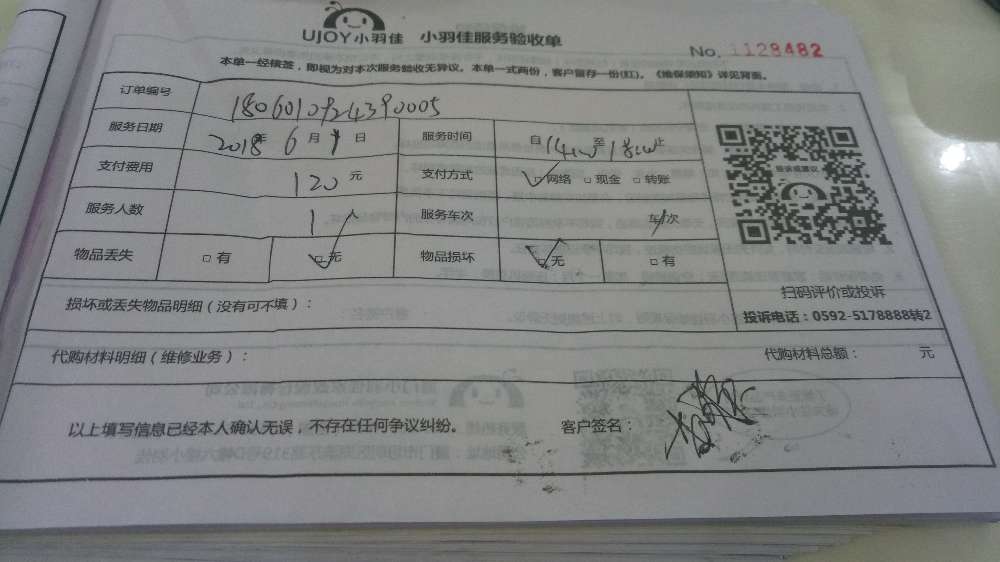 UJOY小羽佳 小羽佳服务验收单
No. 1128482
本单一经核签，即视为对本次服务验收无异议。本单一式两份，客户留存一份(红)。《维保须知》详见背面。
订单编号 1806010924390005
服务日期 2018年 6月 1日 服务时间 自14:00至18:00止
支付费用 120元 支付方式 □网络 □现金 □转账
服务人数 1人 服务车次 车/次
物品丢失 □有 □无 物品损坏 □无 □有
投诉或建议
扫码评价或投诉
投诉电话：0592-5178888转2
损坏或丢失物品明细（没有可不填）：
代购材料明细（维修业务）： 代购材料总额： 元
以上填写信息已经本人确认无误，不存在任何争议纠纷。 客户签名：